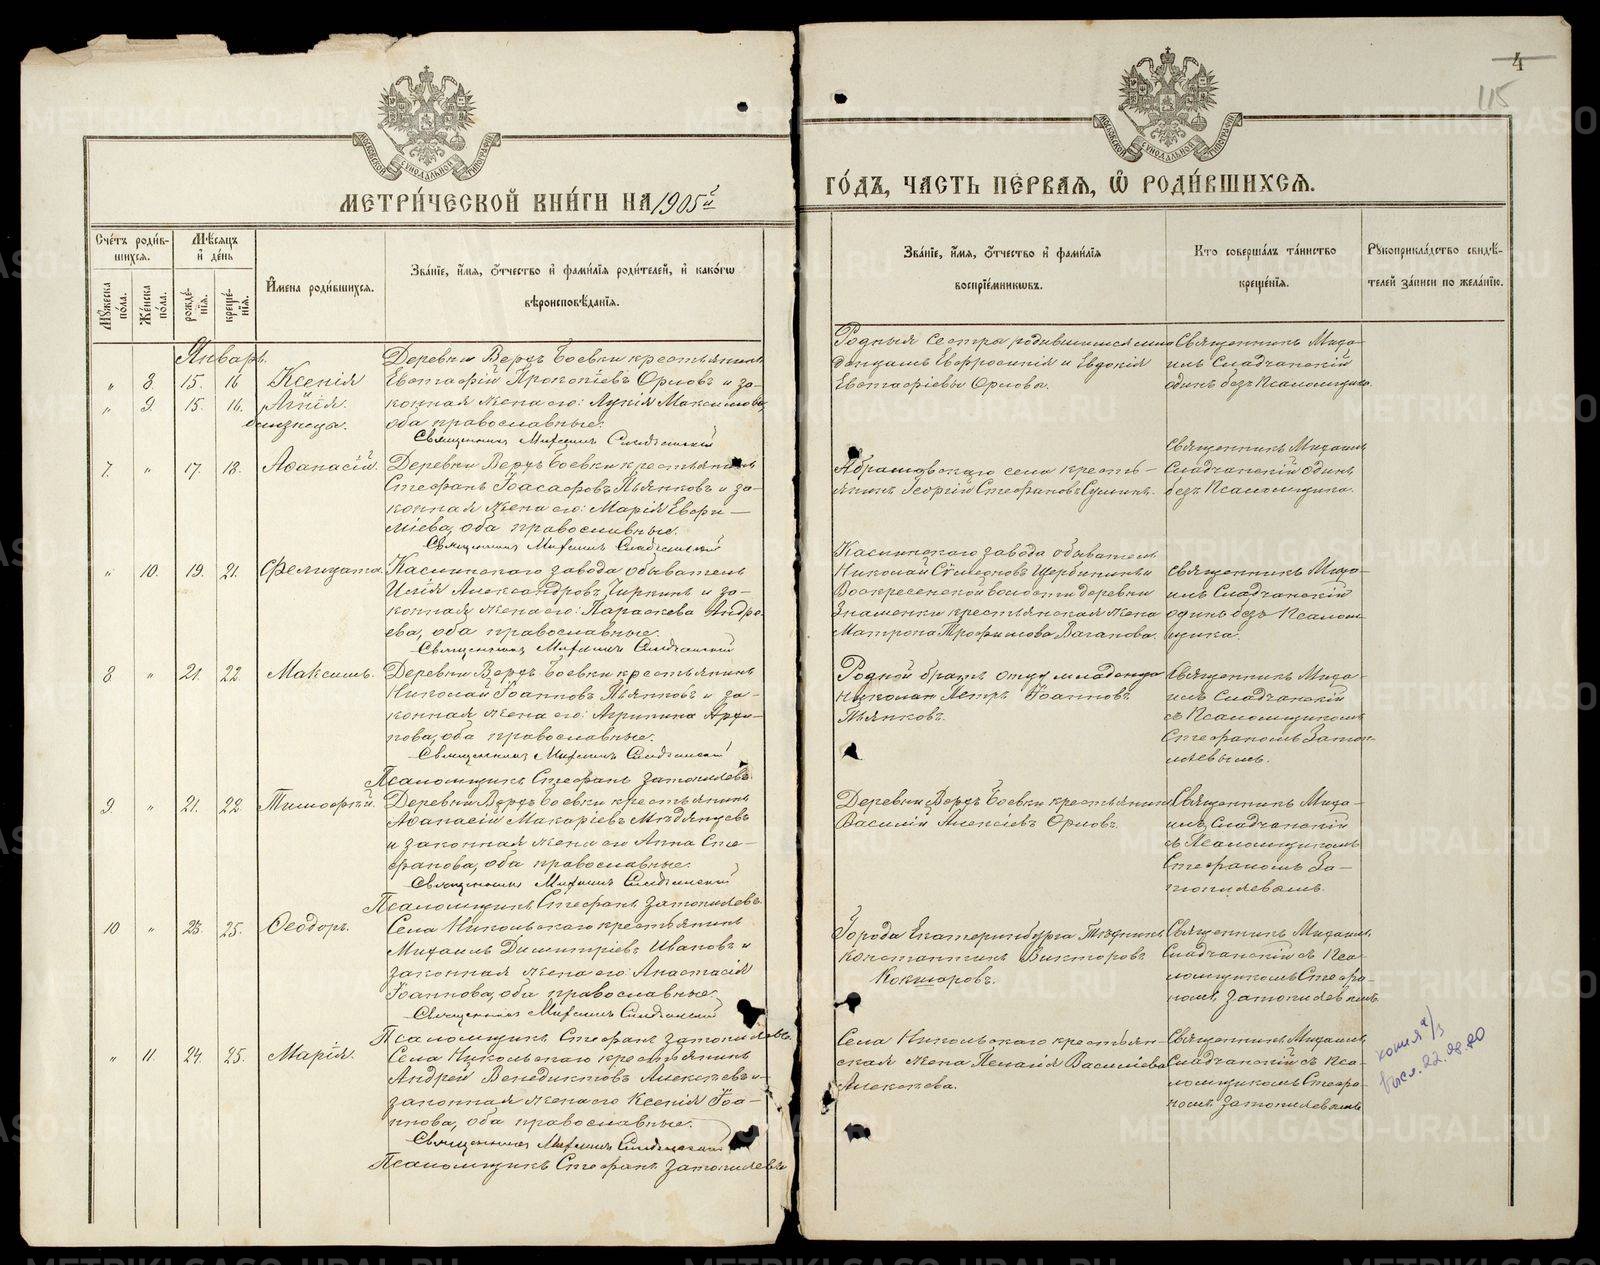 4
115
МОСКОВСКОЙ СѴНОДАЛЬНОЙ ТИПОГРАФІИ
МОСКОВСКОЙ СѴНОДАЛЬНОЙ ТИПОГРАФІИ
МЕТРИ́ЧЕСКОЙ КНИ́ГИ НА 1905й
ГО́ДЪ, ЧАСТЬ ПЕ́РВАЯ, Ѡ РОДИ́ВШИХСЯ.
Сче́тъ роди́в-
шихся.
Му́жеска по́ла.
Же́нска по́ла.
Мѣ́сяцъ
и де́нь
рожде́-
нїя.
креще́-
нїя.
И́мена роди́вшихся.
Зва́нїе, и́мя, ѻ́тчество и фами́лїя роди́телей, и како́гѡ
вѣроисповѣ́данїя.
Зва́нїе, и́мя, ѻ́тчество и фами́лїя
воспрїе́мникѡвъ.
Кто соверша́лъ та́инство
креще́нїя.
Рꙋкоприкла́дство свидѣ́-
телей за́писи по жела́нїю.
Январь.
" 8. 15. 16 Ксенія
" 9. 15. 16. Агнія.
близнецы.
Деревни Верхъ Боевки крестьянинъ
Евстафій Прокопіевъ Орловъ и за-
конная жена его: Лукія Максимова,
оба православные.
Священникъ Михаилъ Сладчанскій
Родныя сестры родившимся мла
денцамъ Евфросинія и Евдокія
Евстафіевы Орловы.
Священникъ Миха-
илъ Сладчанскій
одинъ безъ Псаломщика.
7. " 17. 18. Аѳанасій.
Деревни Верхъ Боевки крестьянинъ
Стефанъ Іоасафовъ Пьянковъ и за-
конная жена его: Марія Евфи-
міева, оба православные.
Священникъ Михаилъ Сладчанскій
Абрамовскаго села кресть-
янинъ Георгій Стефановъ
Священникъ Михаилъ
Сладчанскій одинъ
безъ Псаломщика.
" 10. 19. 21. Фелицата.
Каслинскаго завода обыватель
Илія Александровъ Чиркинъ и за-
конная жена его: Параскева Андре
ева, оба православные.
Священникъ Михаилъ Сладчанскій
Каслинскаго завода обыватель
Николай Сѵмеоновъ Щербининъ и
Воскресенской волости деревни
Знаменки крестьянская жена
Матрона Трофимова Ваганова.
Священникъ Миха-
илъ Сладчанскій
одинъ безъ Псалом-
щика.
8 " 21. 22. Максимъ.
Деревни Верхъ Боевки крестьянинъ
Николай Іоанновъ Пьянковъ и за-
конная жена его: Агрипина
оба православные.
Священникъ Михаилъ Сладчанскій
Псаломщикъ Стефанъ Затопляевъ.
Родной братъ отцу младенца
Николая Петръ Іоанновъ
Пьянковъ.
Священникъ Миха-
илъ Сладчанскій
съ Псаломщикомъ
Стефаномъ Затоп-
ляевымъ.
9 " 21. 22. Тимоѳей.
Деревни Верхъ Боевки крестьянинъ
Аѳанасій Макаріевъ Мѣдянцевъ
и законная жена его Анна Сте-
фанова, оба православные.
Священникъ Михаилъ Сладчанскій
Псаломщикъ Стефанъ Затопляевъ.
Деревни Верхъ Боевки крестьянинъ
Василій Алексіевъ Орловъ.
Священникъ Миха-
илъ Сладчанскій
съ Псаломщикомъ
Стефаномъ За-
топляевымъ.
10 " 23. 25. Ѳеодоръ.
Села Никольскаго крестьянинъ
Михаилъ Димитріевъ Ивановъ и
законная жена его: Анастасія
Іоаннова, оба православные.
Священникъ Михаилъ Сладчанскій
Псаломщикъ Стефанъ Затопляевъ.
Города Екатеринбурга
Константинъ Викторовъ
Кокшаровъ.
Священникъ Михаилъ
Сладчанскій съ Пса-
ломщикомъ Стефа-
номъ Затопляевымъ.
" 11. 24. 25. Марія.
Села Никольскаго крестьянинъ
Андрей Венедиктовъ Алексѣевъ и
законная жена его Ксенія Іоа-
ннова, оба православные.
Священникъ Михаилъ Сладчанскій
Псаломщикъ Стефанъ Затопляевъ
Села Никольскаго крестьян-
ская жена Пелагія Василіева
Алексѣева.
Священникъ Михаилъ
Сладчанскій съ Пса-
ломщикомъ Стефа-
номъ Затопляевымъ
копия
высл. 22.09.20
METRIKI.GASO-URAL.RU